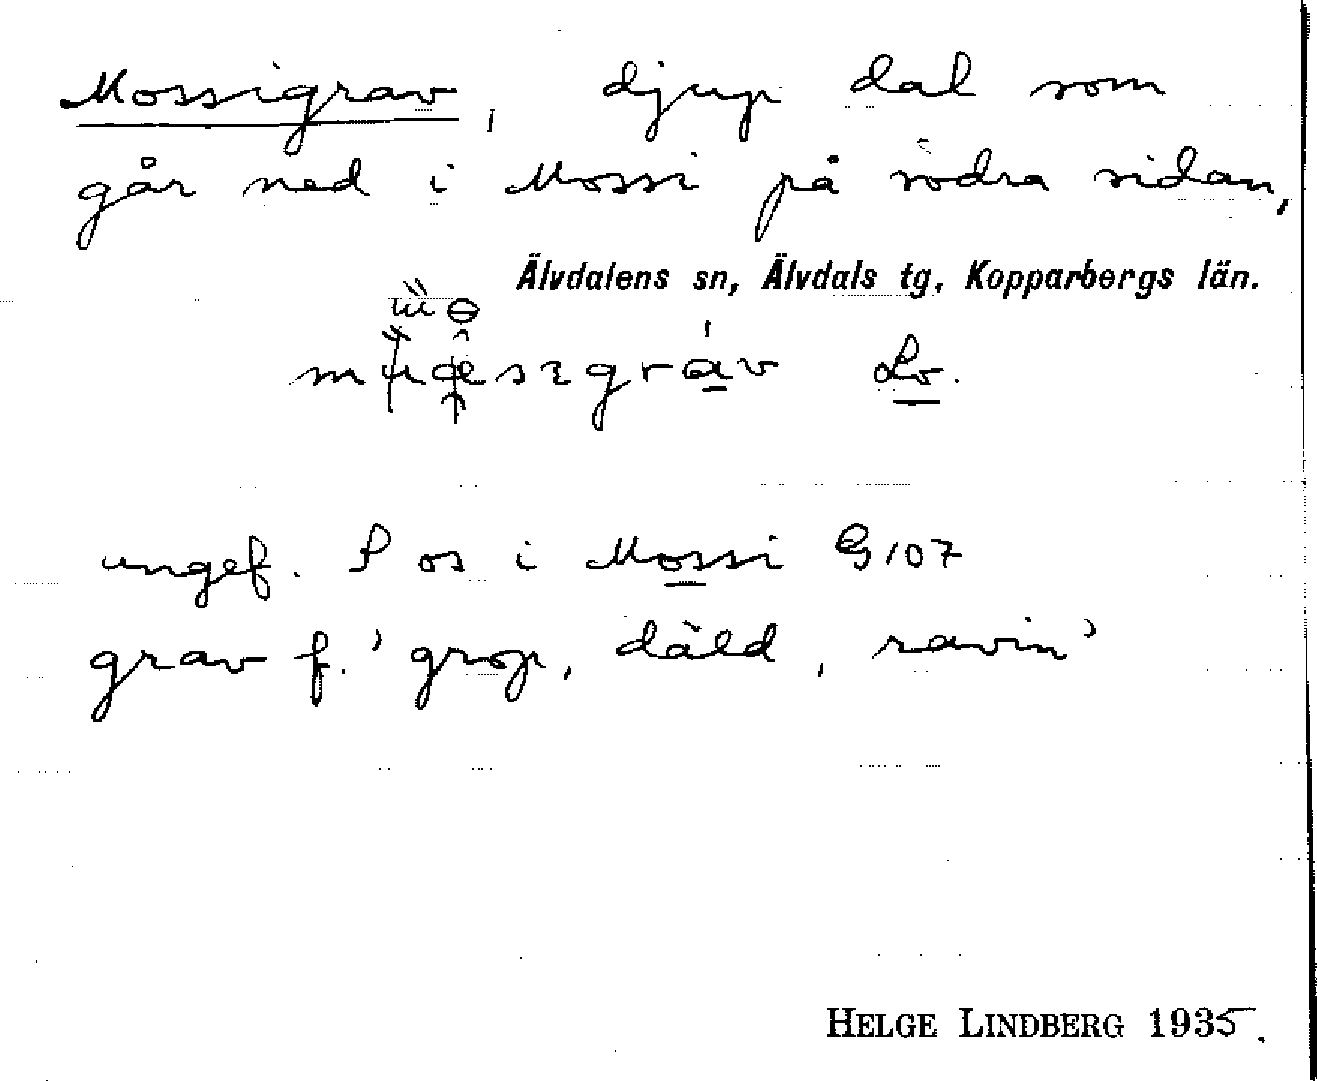 Mossigrav, djup dal som
går ned i Mossi på södra sidan,
Älvdalens sn, Älvdals tg, Kopparbergs län.
Lv.
ungef. S os i Mossi G107
grav f. 'grop, däld, ravin'
HELGE LINDBERG 1935.